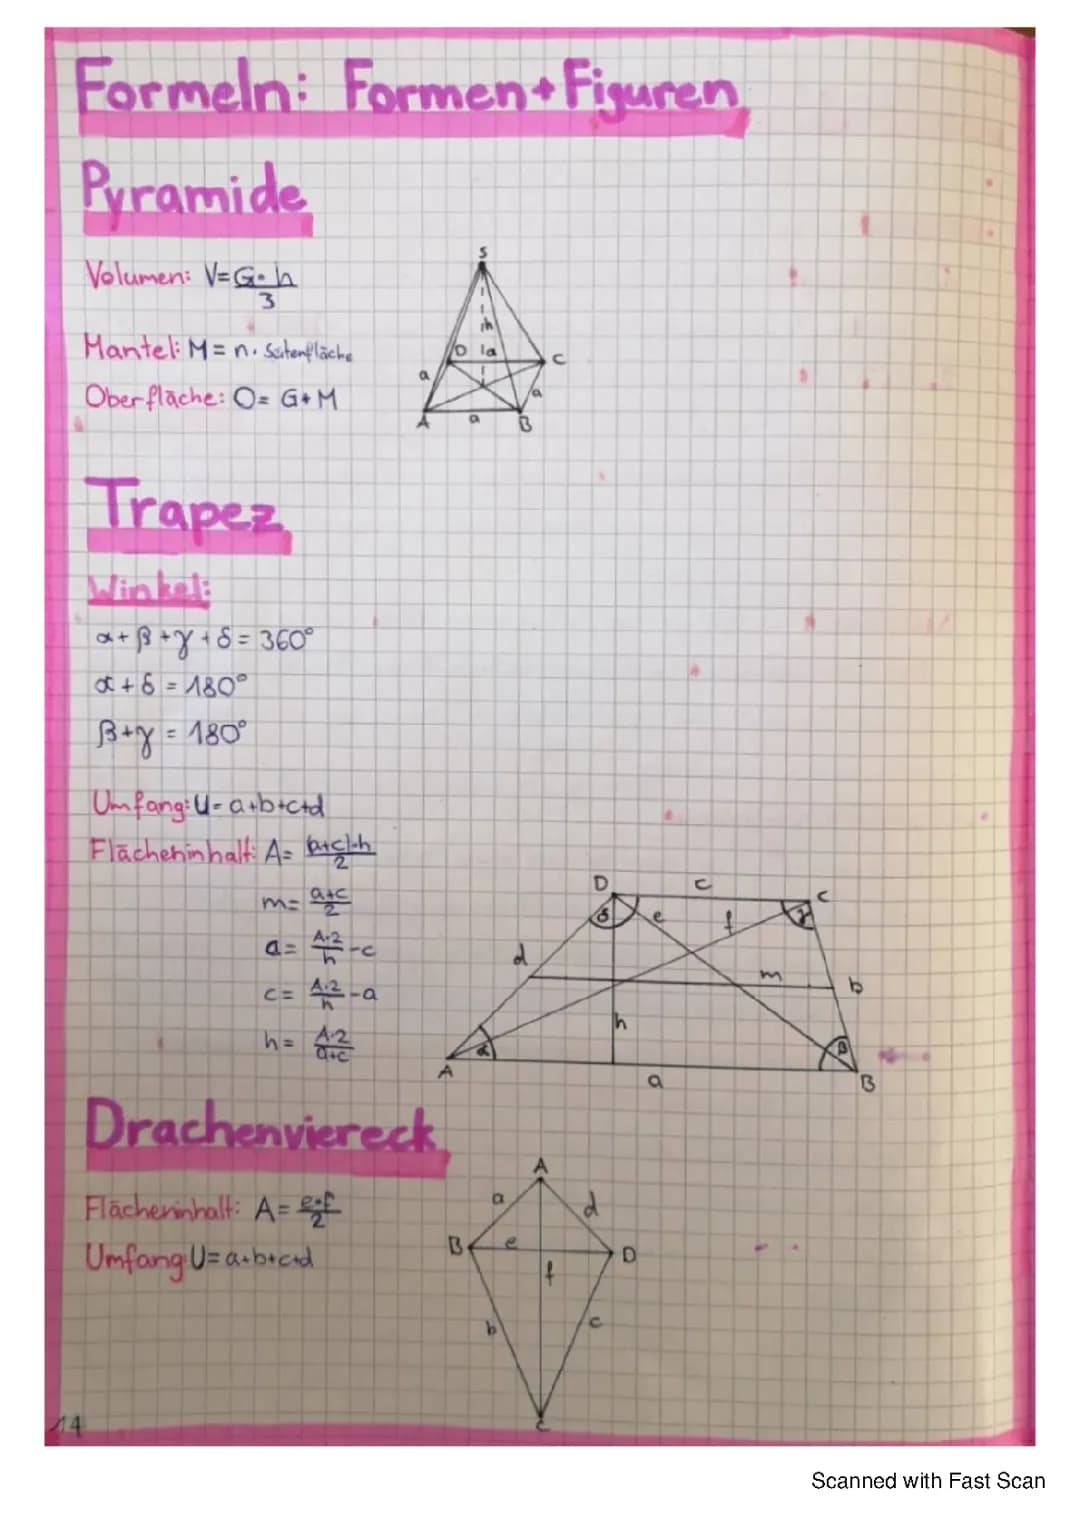 Formeln: Formen+Figuren
Pyramide
Volumen: V=G·h/3
Mantel: M= n· Seitenfläche
Oberfläche: O= G+M
S
h
D
a
C
a
a
A
a
B
Trapez
Winkel:
α+β+γ+δ=360°
α+δ=180°
β+γ=180°
Umfang: U=a+b+c+d
Flächeninhalt: A= (a+c)·h/2
m= a+c/2
a= A·2/h -c
c= A·2/h -a
h= A·2/a+c
D
c
C
δ
e
f
γ
d
m
b
h
α
β
A
a
B
Drachenviereck
Flächeninhalt: A= e·f/2
Umfang: U=a+b+c+d
A
a
d
B
e
D
f
b
c
C
14
Scanned with Fast Scan